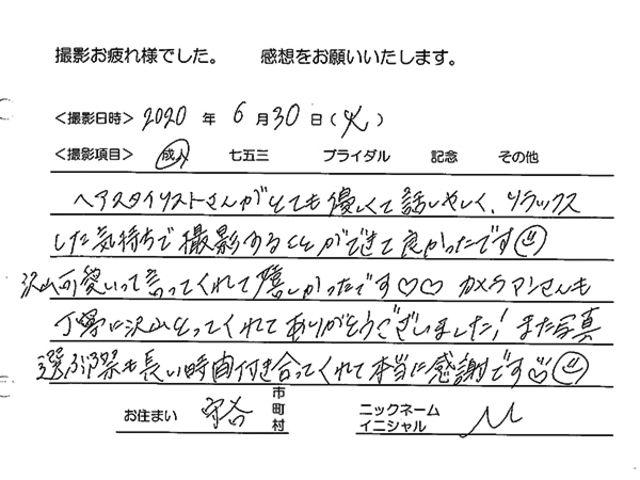 撮影お疲れ様でした。 感想をお願いいたします。
<撮影日時> 2020 年 6 月 30 日(火)
<撮影項目> 成人 七五三 ブライダル 記念 その他
ヘアスタイリストさんがとても優しくて話しやしく、リラックス
した気持ちで撮影することができて良かったです
沢山可愛いって言ってくれて嬉しかったです♡♡ カメラマンさんも
丁寧に沢山とってくれてありがとうございました! また写真
選ぶ際も長い時間付き合ってくれて本当に感謝です
お住まい 守谷 市町村 ニックネーム イニシャル M